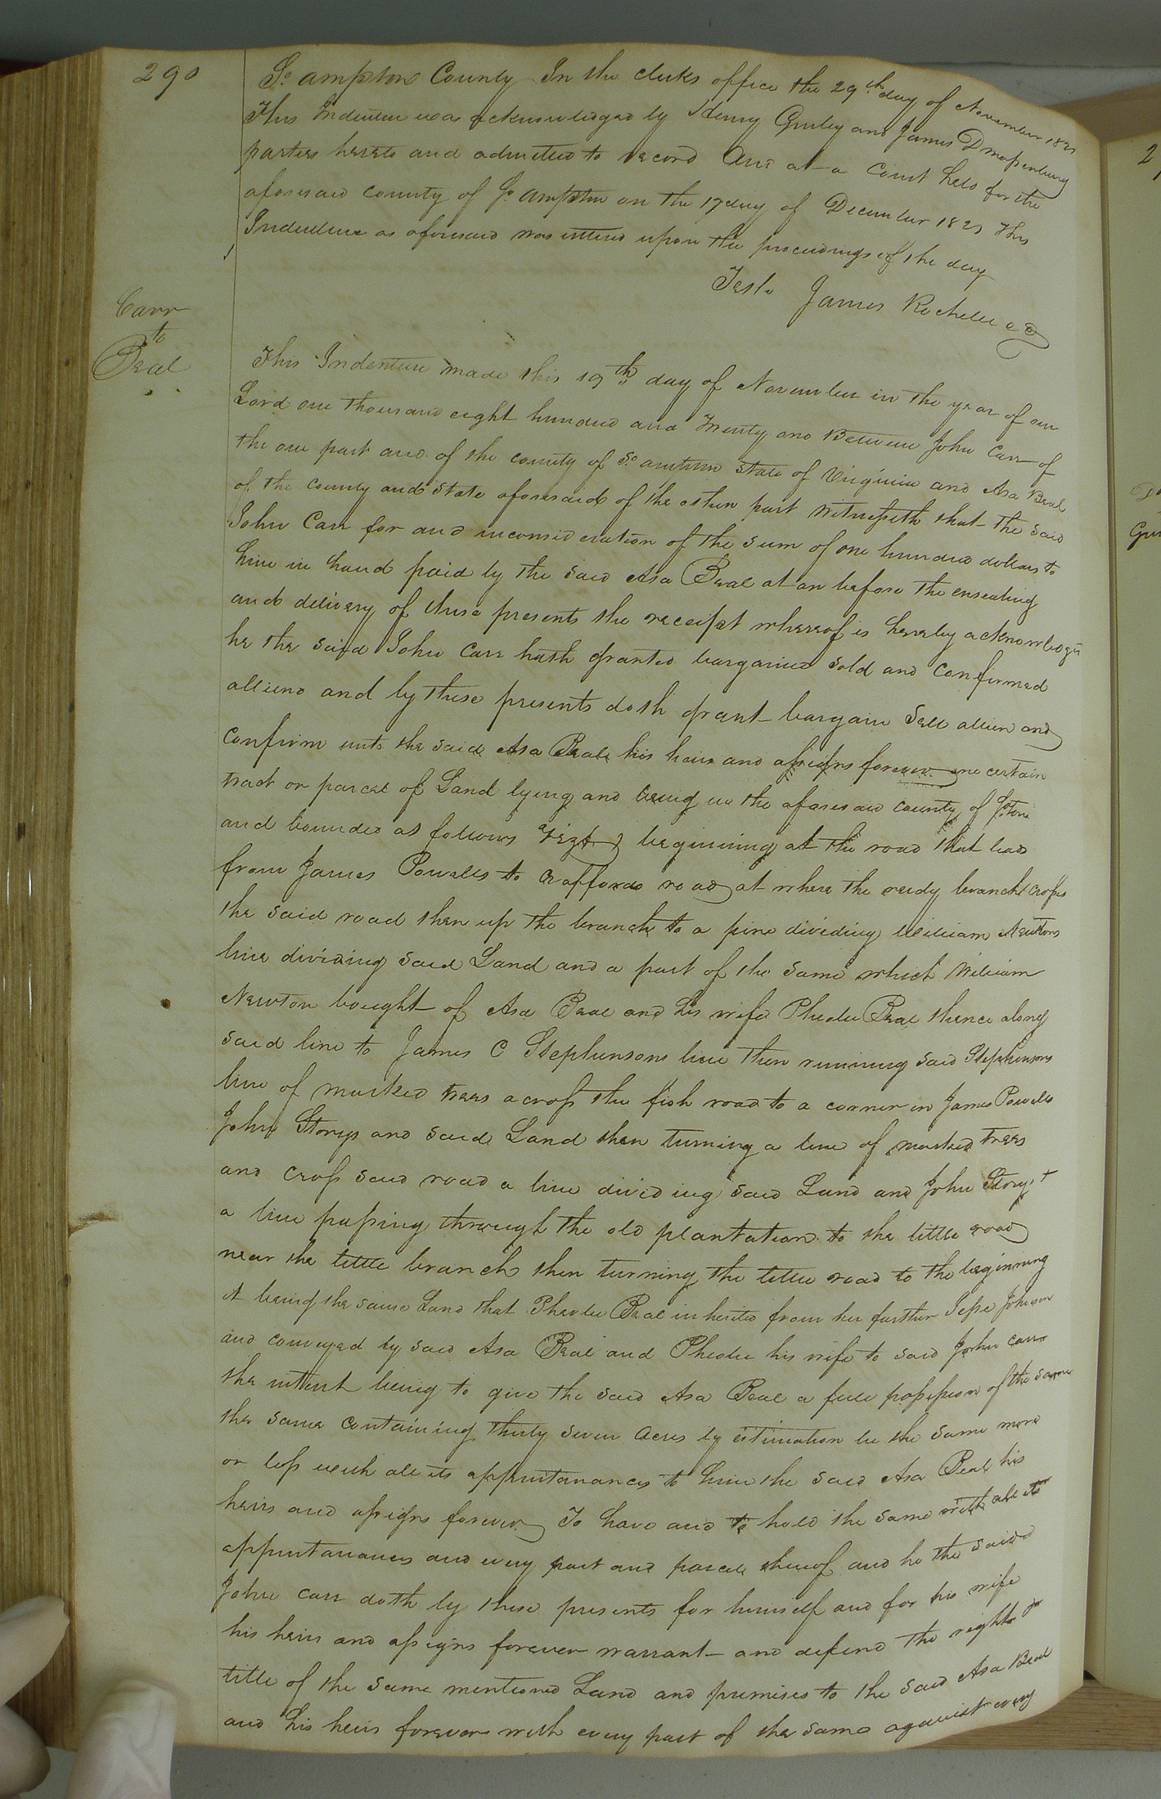 290
So. ampton County In the clerks office the 29th day of November 1821
This Indenture was acknowledged by Henry Gurley and James D massenburg
parties hereto and admitted to record And at a Court held for the
aforesaid county of So. ampton on the 17 day of December 1821 This
Indenture as aforesaid was entered upon the proceedings of the day
Teste James Rochelle
Carr
to
Beal
This Indenture made this 19th day of November in the year of our
Lord one thousand eight hundred and Twenty one Between John Carr of
the one part and of the county of So. amton State of Virginia and Asa Beal
of the county and State aforesaid of the other part Witnesseth that the said
John Carr for and inconsideration of the sum of one hundred dollars to
him in hand paid by the said Asa Beal at or before the ensealing
and delivery of these presents the receipt whereof is hereby acknowledged
he the said John Carr hath granted bargained sold and confirmed
aliend and by these presents doth grant bargain Sell alien and
Confirm unto the said Asa Beal his heirs and assigns forever one certain
tract or parcel of Land lying and being in the aforesaid county of
and bounded as follows begining at the road that leads
from James Powells to Craffords road at where the reedy branch cross
the said road then up the branch to a pine dividing William Newtons
line dividing said Land and a part of the same which William
Newton bought of Asa Beal and his wife Phedee Beal thence along
said line to James C Stephensons line then running said Stephensons
line of marked trees across the fish road to a corner in James Powells
John Storys and said Land then turning a line of marked trees
and cross said road a line dividing said Land and John Storys
a line passing through the old plantation to the little road
near the little branch then turning the little road to the beginning
it being the same Land that Phedee Beal inherited from her farther Jesse Johnson
and conveyed by said Asa Beal and Phedee his wife to said John Carr
the intent being to give the said Asa Beal a full possession of the same
the same containing thirty seven acres by estimation be the same more
or less with all its appurtanances to him the said Asa Beal his
heirs and assigns forever To have and to hold the same with all its
appurtanances and every part and parcel thereof and he the said
John Carr doth by these presents for himself and for his wife
his heirs and assigns forever warrant and defend the right
title of the same mentioned Land and premises to the said Asa Beal
and his heirs forever with every part of the same against every